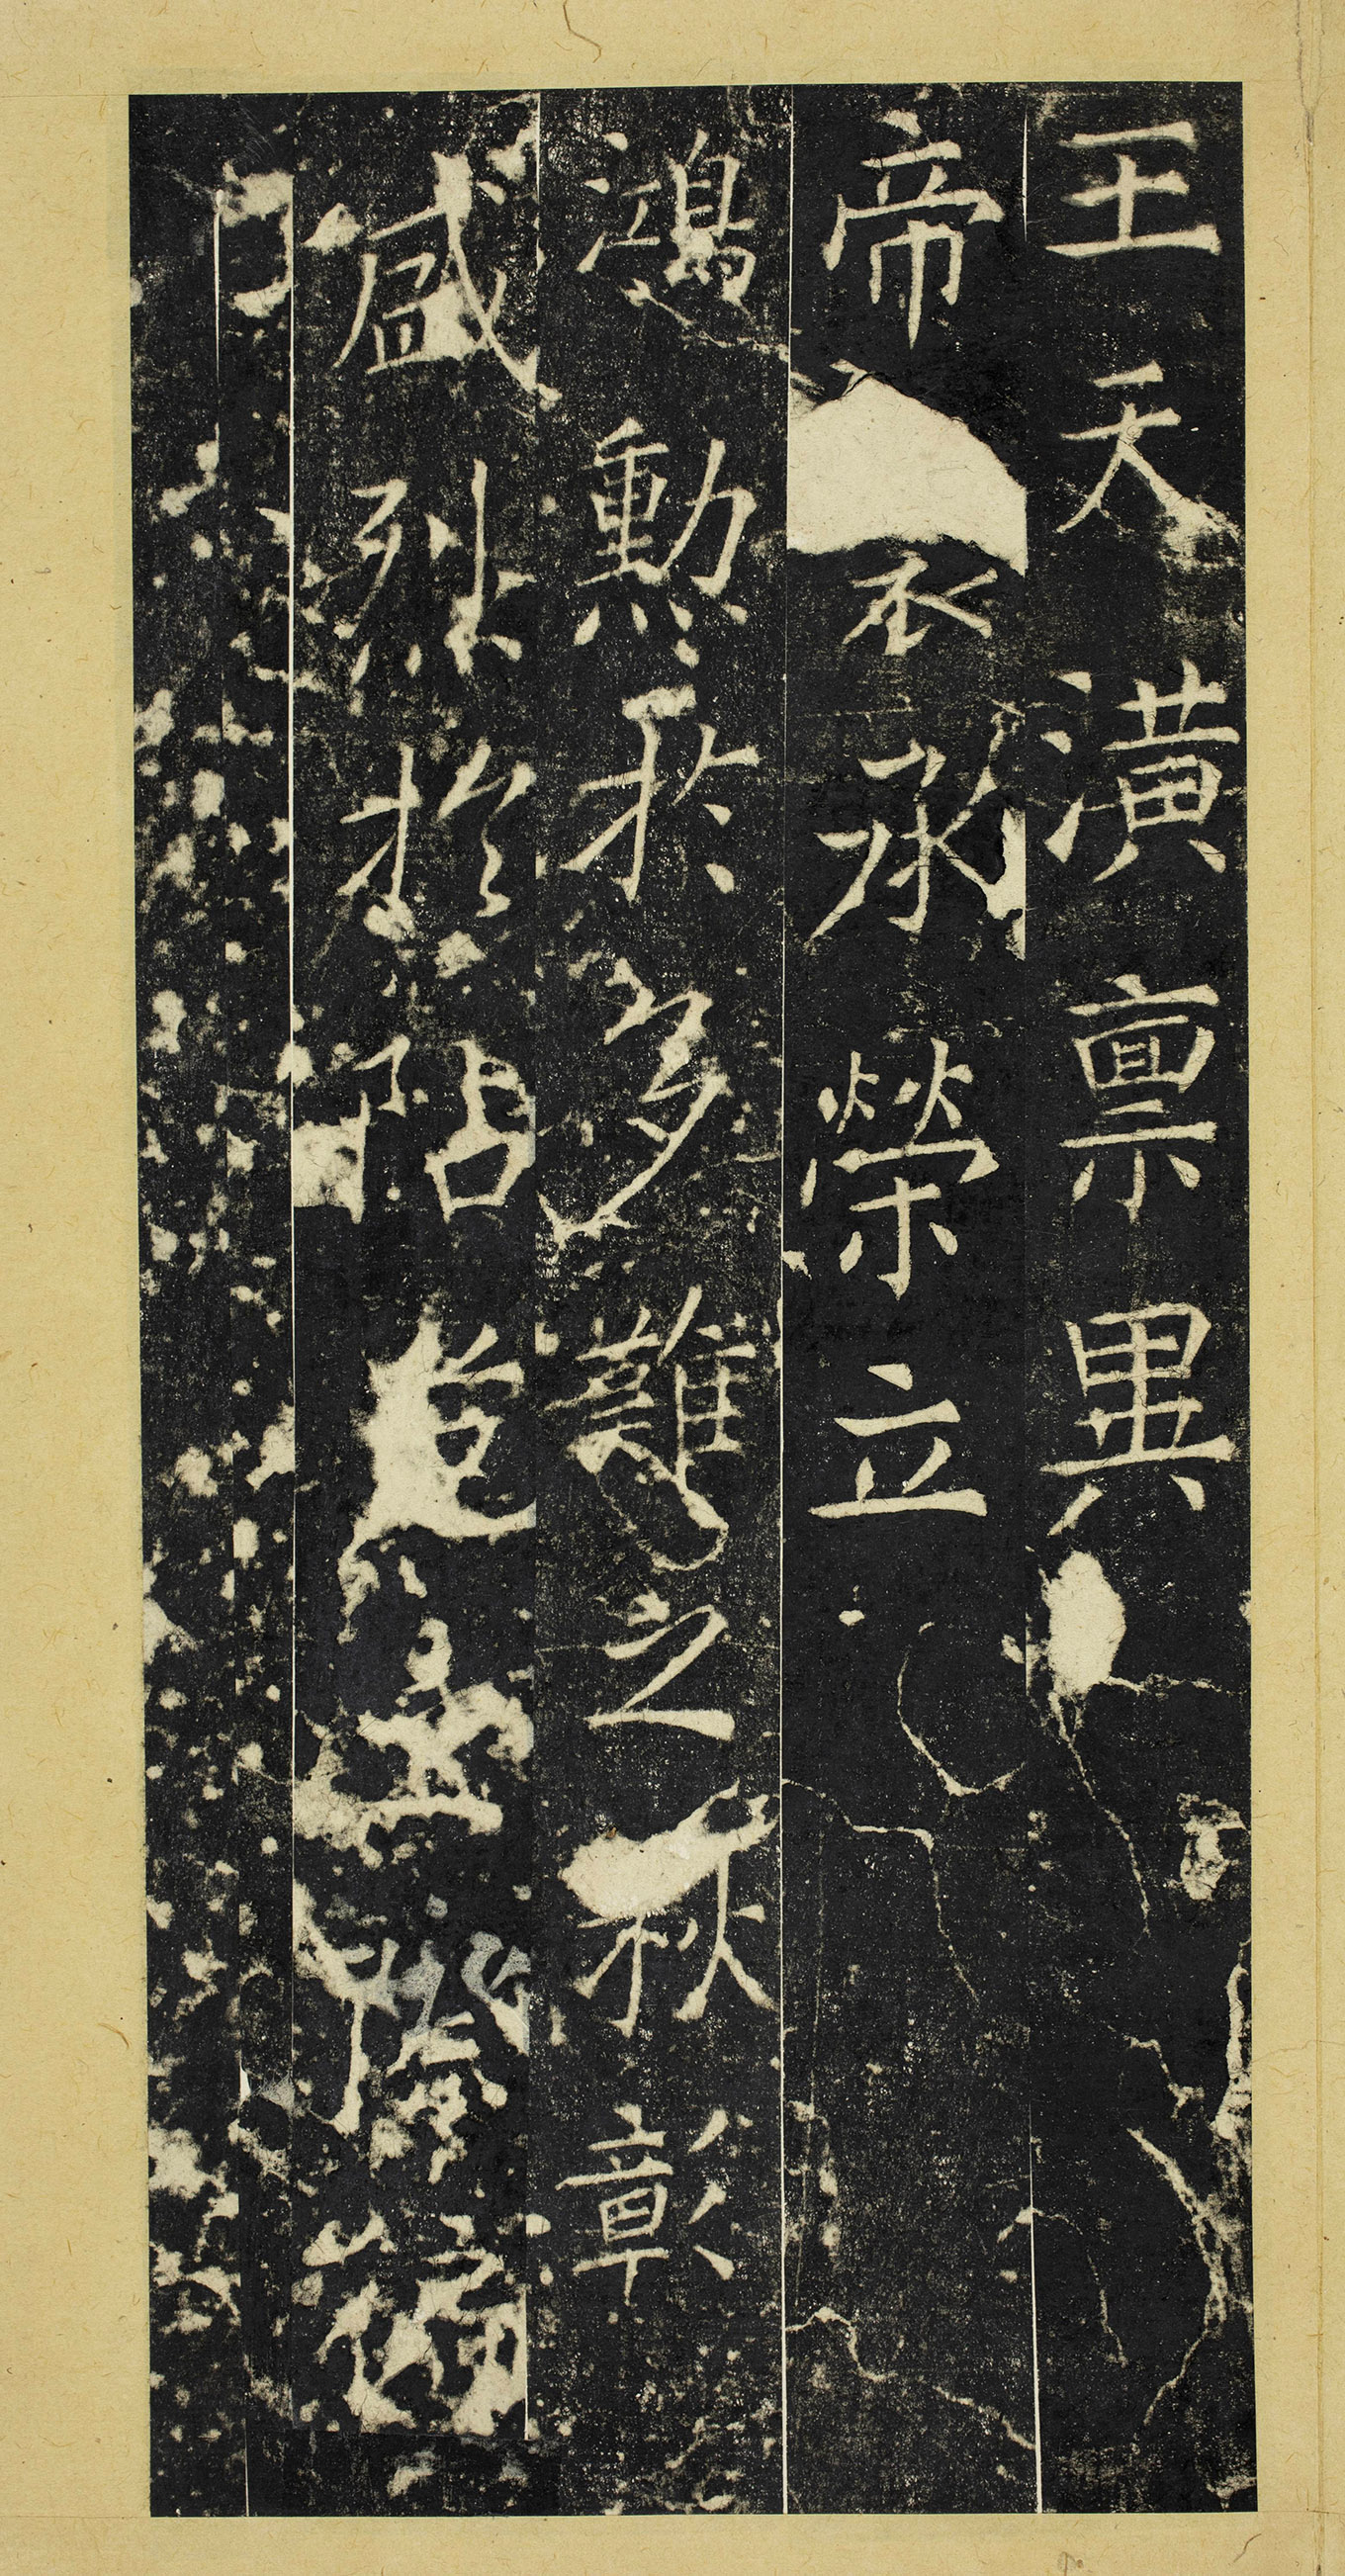 王天潢稟異
帝承榮立
鴻勳於多難之秋彰
盛烈於阽